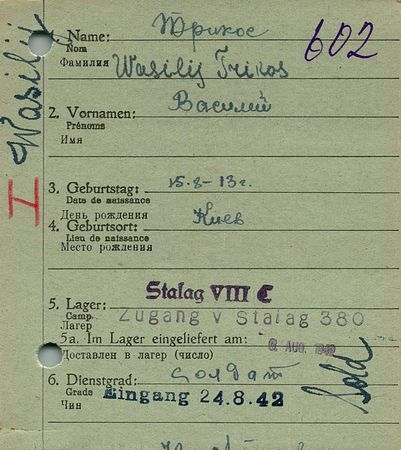 1. Name: Трикос 602
Nom
Фамилия Wasilij Trikos
Wasilij
I
2. Vornamen: Василий
Prénoms
Имя
3. Geburtstag: 15.8-13г.
Date de naissance
День рождения
4. Geburtsort: Киев
Lieu de naissance
Место рождения
Stalag VIII C
5. Lager: Zugang v Stalag 380
Camp
Лагерь
5a. Im Lager eingeliefert am: AUG.
Доставлен в лагерь (число)
6. Dienstgrad: солдат Sold
Grade Eingang 24.8.42
Чин